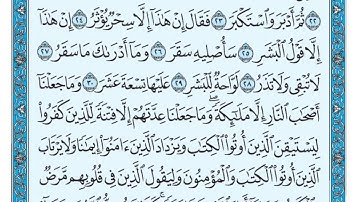 ٢٢ ثُمَّ أَدْبَرَ وَٱسْتَكْبَرَ ٢٣ فَقَالَ إِنْ هَٰذَآ إِلَّا سِحْرٌ يُؤْثَرُ ٢٤ إِنْ هَٰذَآ
إِلَّا قَوْلُ ٱلْبَشَرِ ٢٥ سَأُصْلِيهِ سَقَرَ ٢٦ وَمَآ أَدْرَىٰكَ مَا سَقَرُ ٢٧
لَا تُبْقِى وَلَا تَذَرُ ٢٨ لَوَّاحَةٌ لِّلْبَشَرِ ٢٩ عَلَيْهَا تِسْعَةَ عَشَرَ ٣٠ وَمَا جَعَلْنَآ
أَصْحَٰبَ ٱلنَّارِ إِلَّا مَلَٰٓئِكَةً وَمَا جَعَلْنَا عِدَّتَهُمْ إِلَّا فِتْنَةً لِّلَّذِينَ كَفَرُوا۟
لِيَسْتَيْقِنَ ٱلَّذِينَ أُوتُوا۟ ٱلْكِتَٰبَ وَيَزْدَادَ ٱلَّذِينَ ءَامَنُوٓا۟ إِيمَٰنًا وَلَا يَرْتَابَ
ٱلَّذِينَ أُوتُوا۟ ٱلْكِتَٰبَ وَٱلْمُؤْمِنُونَ وَلِيَقُولَ ٱلَّذِينَ فِى قُلُوبِهِم مَّرَضٌ